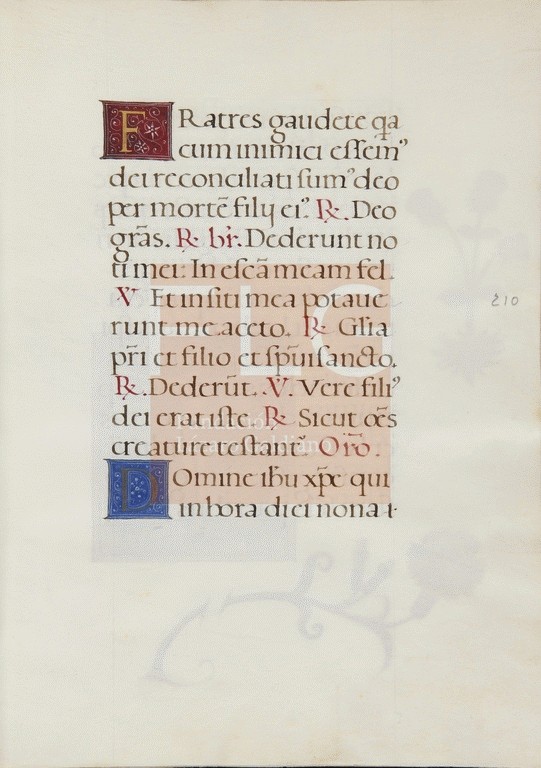 FRatres gaudete q̃a
cum inimici eſſem⁹
dei reconciliati ſum⁹ deo
per mortẽ filij ei⁹. ℟. Deo
gr̃as. ℟ br̃. Dederunt no
ti mei: In eſcã meam fel.
V Et in ſiti mea potaue
runt me aceto. ℟ Glĩa
pr̃i et filio et ſp̃ui ſancto.
℟. Dederũt. V. Vere fili⁹
dei erat iſte. ℟ Sicut oẽs
creature teſtant᷑. Or̃o.
DOmine ihũ xp̃e qui
in hora diei nona i
210
FLC